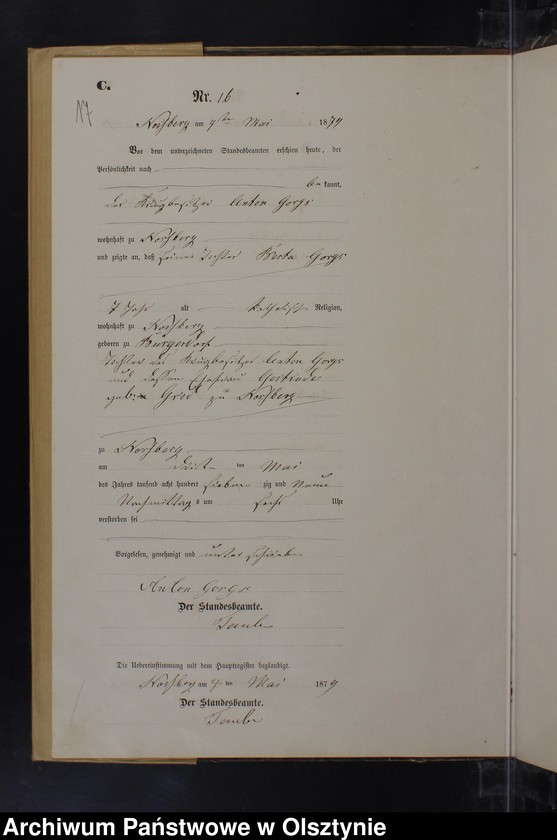 C.
Nr. 16
17
am Mai 1879
Vor dem unterzeichneten Standesbeamten erschien heute, der
Persönlichkeit nach
be kannt,
der Krugbesitzer Anton Gorgs
wohnhaft zu
und zeigte an, daß seine Tochter Berta Gorgs
7 Jahr alt katholischer Religion,
wohnhaft zu
geboren zu Bürgerdorf
Tochter des Krugbesitzer Anton Gorgs
und dessen Ehefrau Gertrude
geb: zu
zu
am ten Mai
des Jahres tausend acht hundert sieben zig und neun
Nachmittag s um sechs Uhr
verstorben sei
Vorgelesen, genehmigt und unterschrieben
Anton Gorgs
Der Standesbeamte.
Die Uebereinstimmung mit dem Hauptregister beglaubigt.
am ten Mai 1879
Der Standesbeamte.
Archiwum Państwowe w Olsztynie